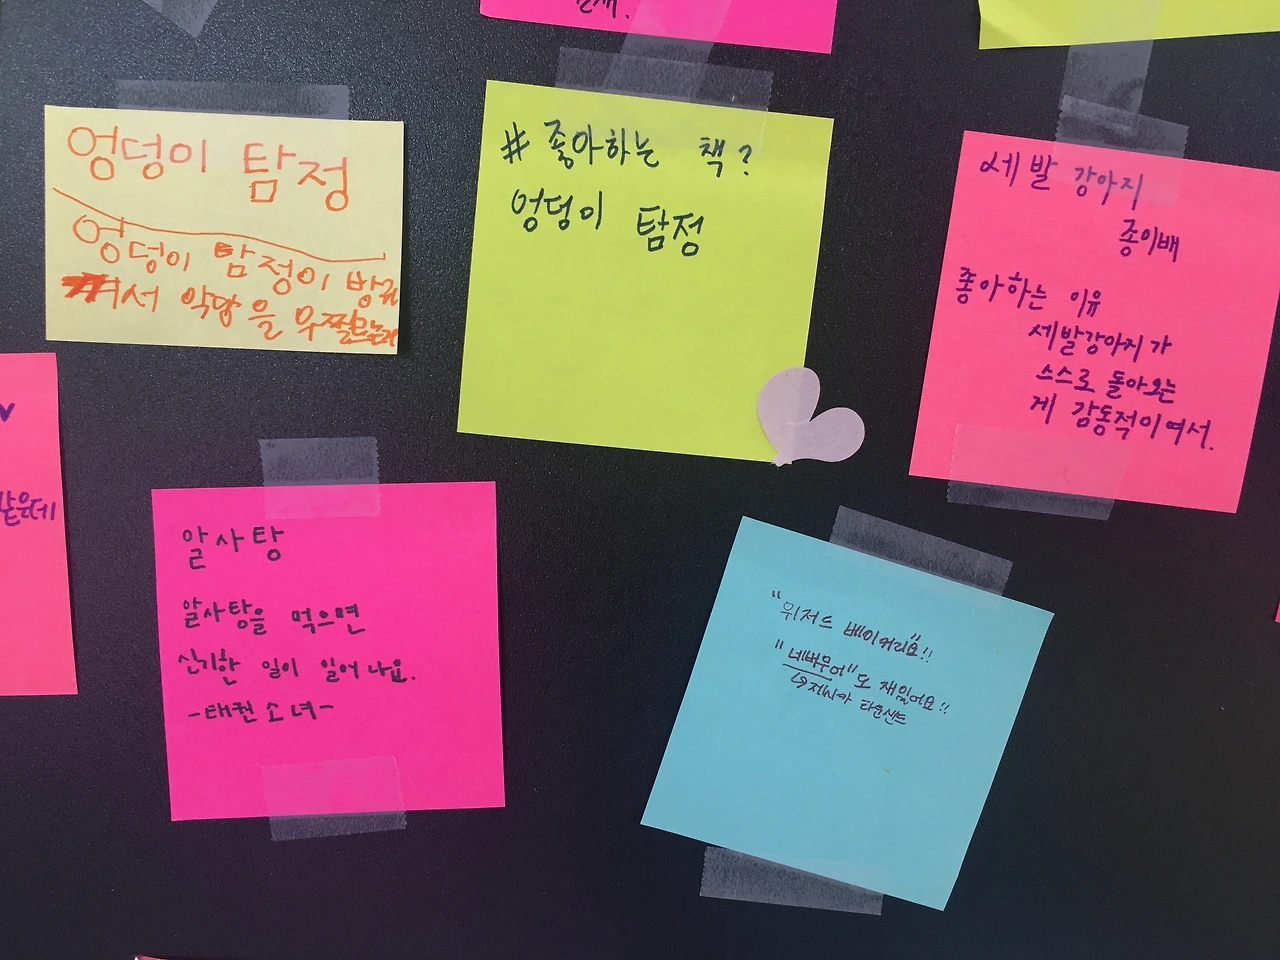 엉덩이 탐정
엉덩이 탐정이 방귀
껴서 악당을 무찔렀는데
# 좋아하는 책?
엉덩이 탐정
세 발 강아지
종이배
좋아하는 이유
세발강아지가
스스로 돌아오는
게 감동적이여서.
같은데
알사탕
알사탕을 먹으면
신기한 일이 일어나요.
-태권소녀-
"위저드 베이커리요"!!
"네버무어"도 재밌어요!!
↳제시카 타운센드